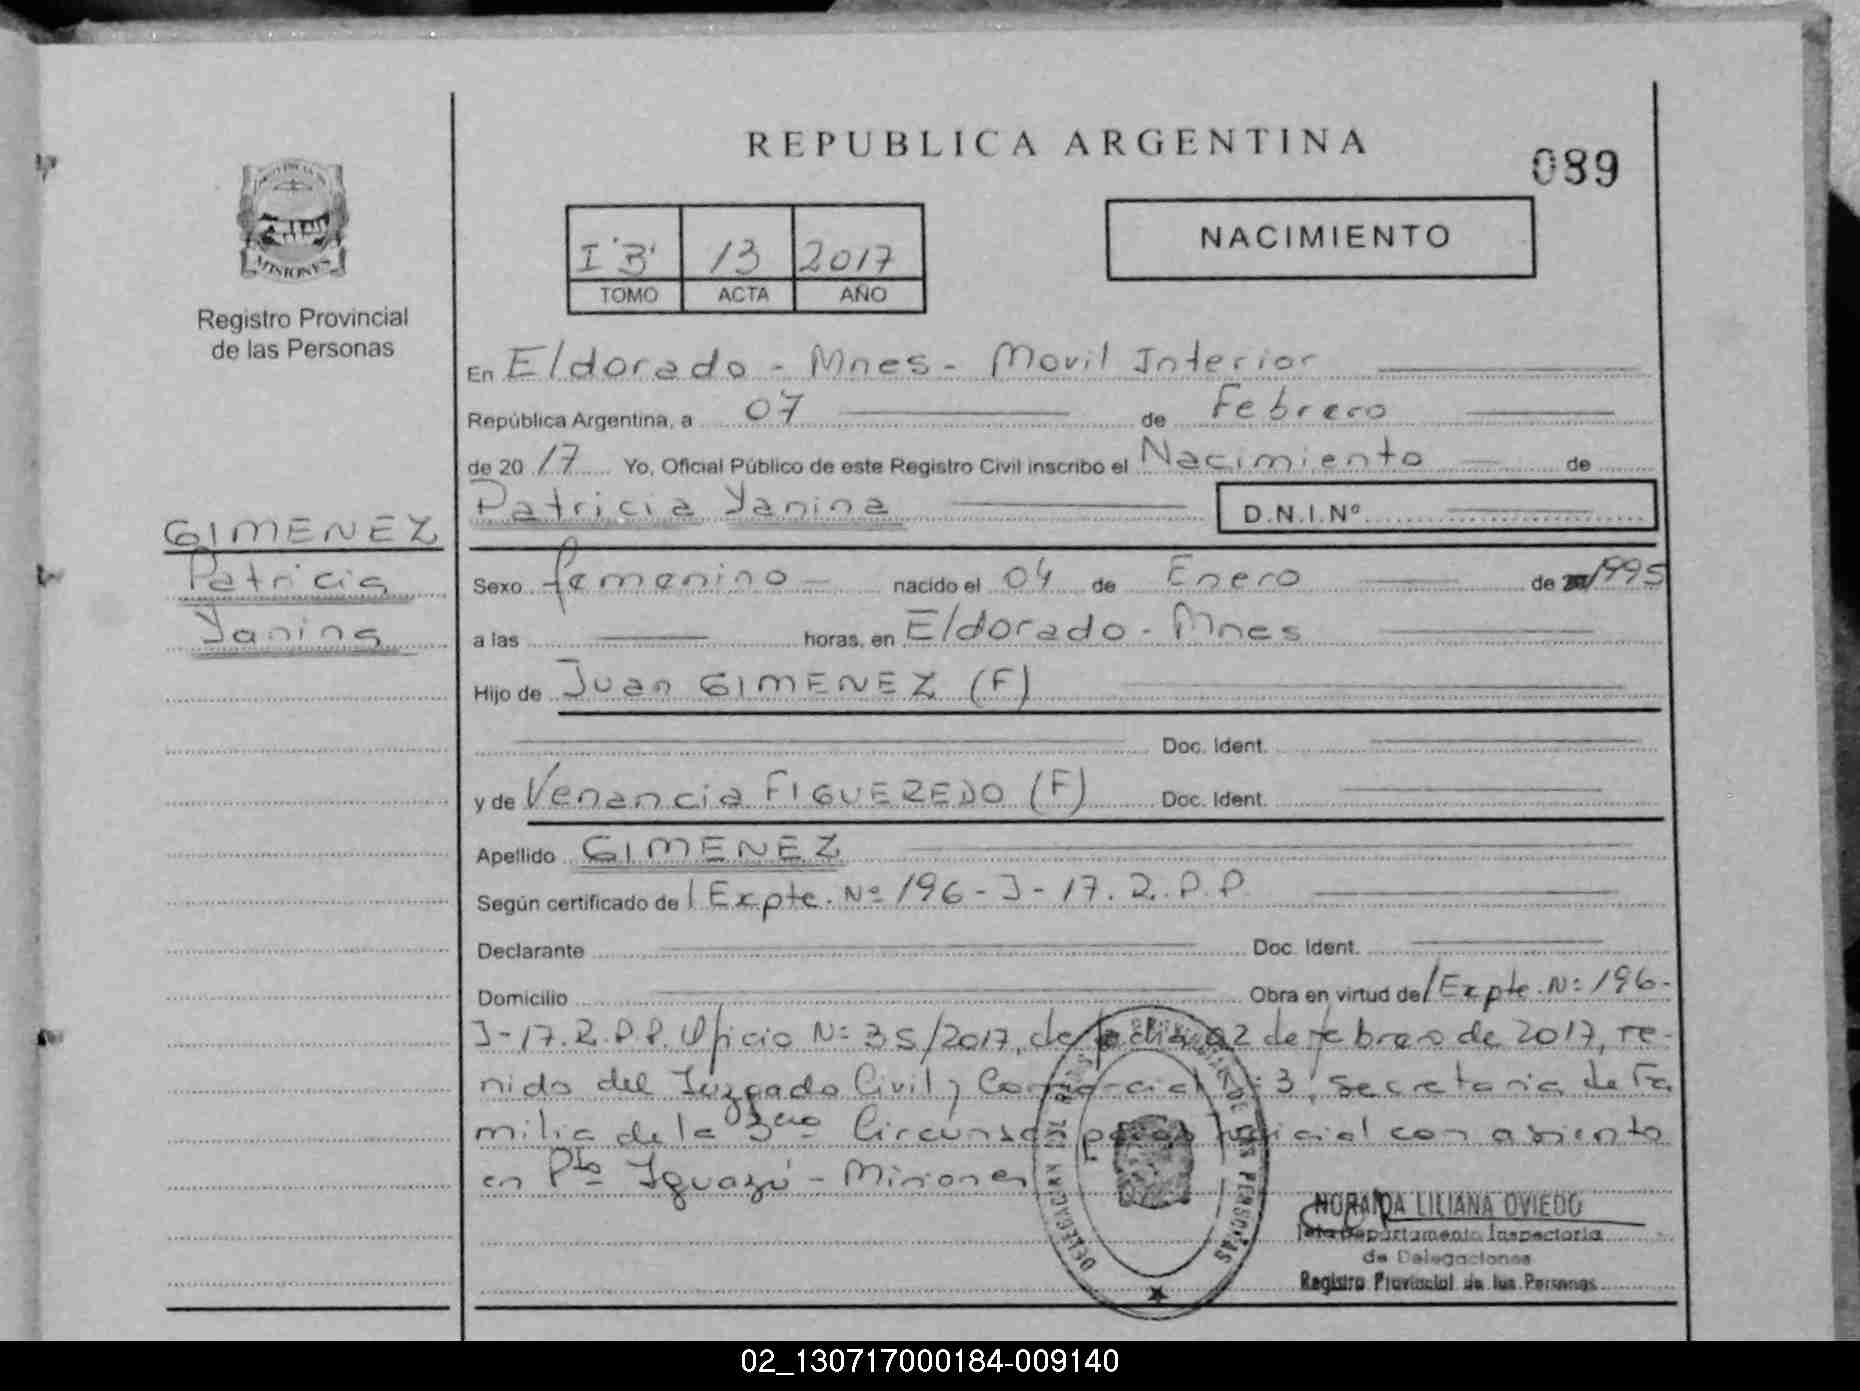 REPUBLICA ARGENTINA
089
MISIONES
Registro Provincial
de las Personas
I "B" 13 2017
TOMO ACTA AÑO
NACIMIENTO
En Eldorado - Mnes - Movil Interior
República Argentina, a 07 de Febrero
de 2017 Yo, Oficial Público de este Registro Civil inscribo el Nacimiento de
Patricia Yanina D.N.I.Nº
GIMENEZ
Patricia
Yanina
Sexo femenino nacido el 04 de Enero de 1995
a las horas, en Eldorado - Mnes
Hijo de Juan GIMENEZ (F)
Doc. Ident.
y de Venancia FIGUEREDO (F) Doc. Ident.
Apellido GIMENEZ
Según certificado de / Expte. Nº 196 - J - 17. R. P. P.
Declarante Doc. Ident.
Domicilio Obra en virtud de / Expte. Nº 196 -
J - 17. R. P. P. Oficio Nº 35/2017, de fecha 02 de febrero de 2017, re-
nido del Juzgado Civil y Comercial Nº 3, secretaria de Fa
milia de la 3era Circunscripción Judicial con asiento
en Pto Iguazú - Misiones
NORAIDA LILIANA OVIEDO
Jefa Departamento Inspectoria
de Delegaciones
Registro Provincial de las Personas
02_130717000184-009140